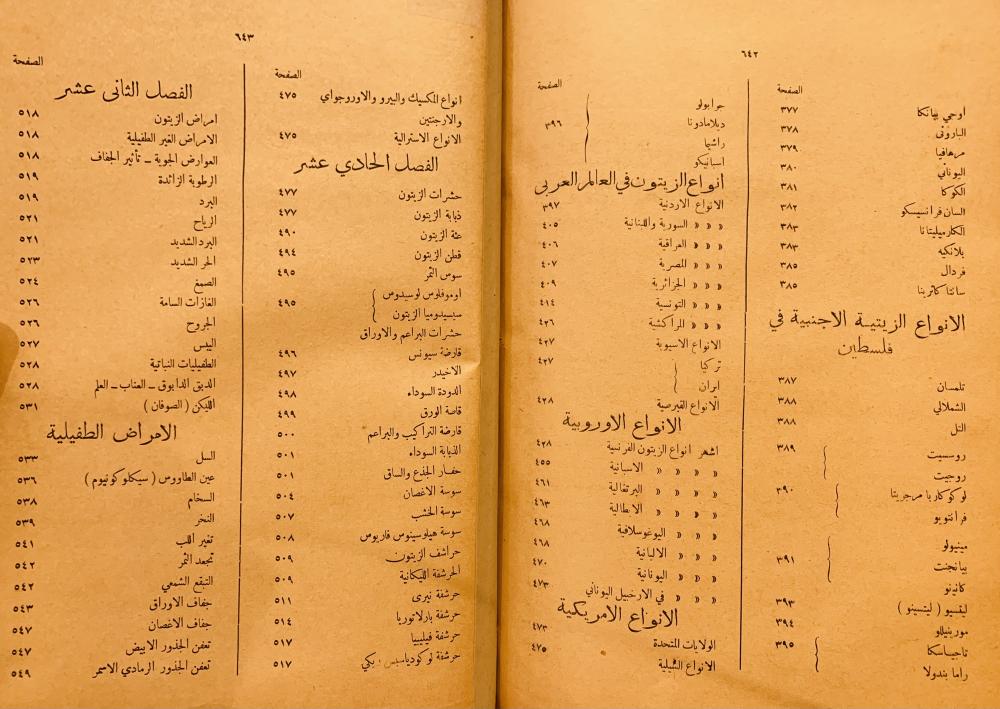 ٦٤٢
الصفحة
اوجي بيانكا ٣٧٧
الباروني ٣٧٨
مرهافيا ٣٧٩
اليوناني ٣٨٠
الكوكا ٣٨١
السان فرانسيسكو ٣٨٢
الكارميليتانا ٣٨٣
بلانكيه ٣٨٣
فردال ٣٨٥
سانتا كاترينا ٣٨٥
الانواع الزيتية الاجنبية في
فلسطين
تلمسان ٣٨٧
الشملالي ٣٨٨
التل ٣٨٨
روسيت ٣٨٩
روجيت
لوكوكاريا مرجريتا ٣٩٠
فرانتويو
مينيولو
بيانجنت ٣٩١
كانينو
ليفسيو ( ليتسينو ) ٣٩٣
مورينيللو ٣٩٤
تاجياسكا ٣٩٥
راما بندولا
الصفحة
جرابولو
ديلامادونا ٣٩٦
راشيا
اسبانيكو
انواع الزيتون في العالم العربى
الانواع الاردنية ٣٩٧
» » » السورية واللبنانية ٤٠٥
» » » العراقية ٤٠٦
» » » المصرية ٤٠٧
» » » الجزائرية ٤٠٩
» » » التونسية ٤١٤
» » » المراكشية ٤٢٦
الانواع الاسيوية ٤٢٧
تركيا ٤٢٧
ايران
الانواع القبرصية ٤٢٨
الانواع الاوروبية
اشهر انواع الزيتون الفرنسية ٤٢٨
» » » » الاسبانية ٤٥٥
» » » » البرتغالية ٤٦١
» » » » الايطالية ٤٦٣
» » » » اليوغوسلافية ٤٦٨
» » » » الالبانية ٤٦٨
» » » » اليونانية ٤٧٠
» » » » في الارخبيل اليوناني ٤٧٣
الانواع الامريكية
الولايات المتحدة ٤٧٣
الانواع الشيلية ٤٧٥
٦٤٣
الصفحة
انواع المكسيك والبيرو والاوروجواي ٤٧٥
والارجنتين
الانواع الاسترالية ٤٧٥
الفصل الحادي عشر
حشرات الزيتون ٤٧٧
ذبابة الزيتون ٤٧٧
عثة الزيتون ٤٩٠
قطن الزيتون ٤٩٤
سوس الثمر ٤٩٥
اوموفلوس لوسيدوس
سيسيدوميا الزيتون ٤٩٥
حشرات البراعم والاوراق
قارضة سيونس ٤٩٦
الاخيدر ٤٩٧
الدودة السوداء ٤٩٨
قاصة الورق ٤٩٩
قارضة التراكيب والبراعم ٥٠٠
الذبابة السوداء ٥٠١
حفار الجذع والساق ٥٠١
سوسة الاغصان ٥٠٤
سوسة الخشب ٥٠٧
سوسة هيلوسينوس فاريوس ٥٠٨
حراشف الزيتون ٥٠٩
الحرشفة الليكانية ٥٠٩
حرشفة نيرى ٥١١
حرشفة بارلاتوريا ٥١٤
حرشفة فيليبيا ٥١٧
حرشفة لوكودياسبس ريكي ٥١٧
الصفحة
الفصل الثانى عشر
امراض الزيتون ٥١٨
الامراض الغير الطفيلية ٥١٨
العوارض الجوية ــ تأثير الجفاف ٥١٨
الرطوبة الزائدة ٥١٩
البرد ٥١٩
الرياح ٥٢١
البرد الشديد ٥٢١
الحر الشديد ٥٢٣
الصمغ ٥٢٤
الغازات السامة ٥٢٦
الجروح ٥٢٦
اليبس ٥٢٧
الطفيليات النباتية ٥٢٨
الدبق الدابوق ــ العناب ــ العلم ٥٢٨
الليكن ( الصوفان ) ٥٣١
الامراض الطفيلية
السل ٥٣٣
عين الطاووس ( سيكلوكونيوم ) ٥٣٦
السخام ٥٣٨
النخر ٥٣٩
تغير اللب ٥٤١
تجعد الثمر ٥٤٢
التبقع الشمعي ٥٤٢
جفاف الاوراق ٥٤٣
جفاف الاغصان ٥٤٧
تعفن الجذور الابيض ٥٤٧
تعفن الجذور الرمادي الاسمر ٥٤٩